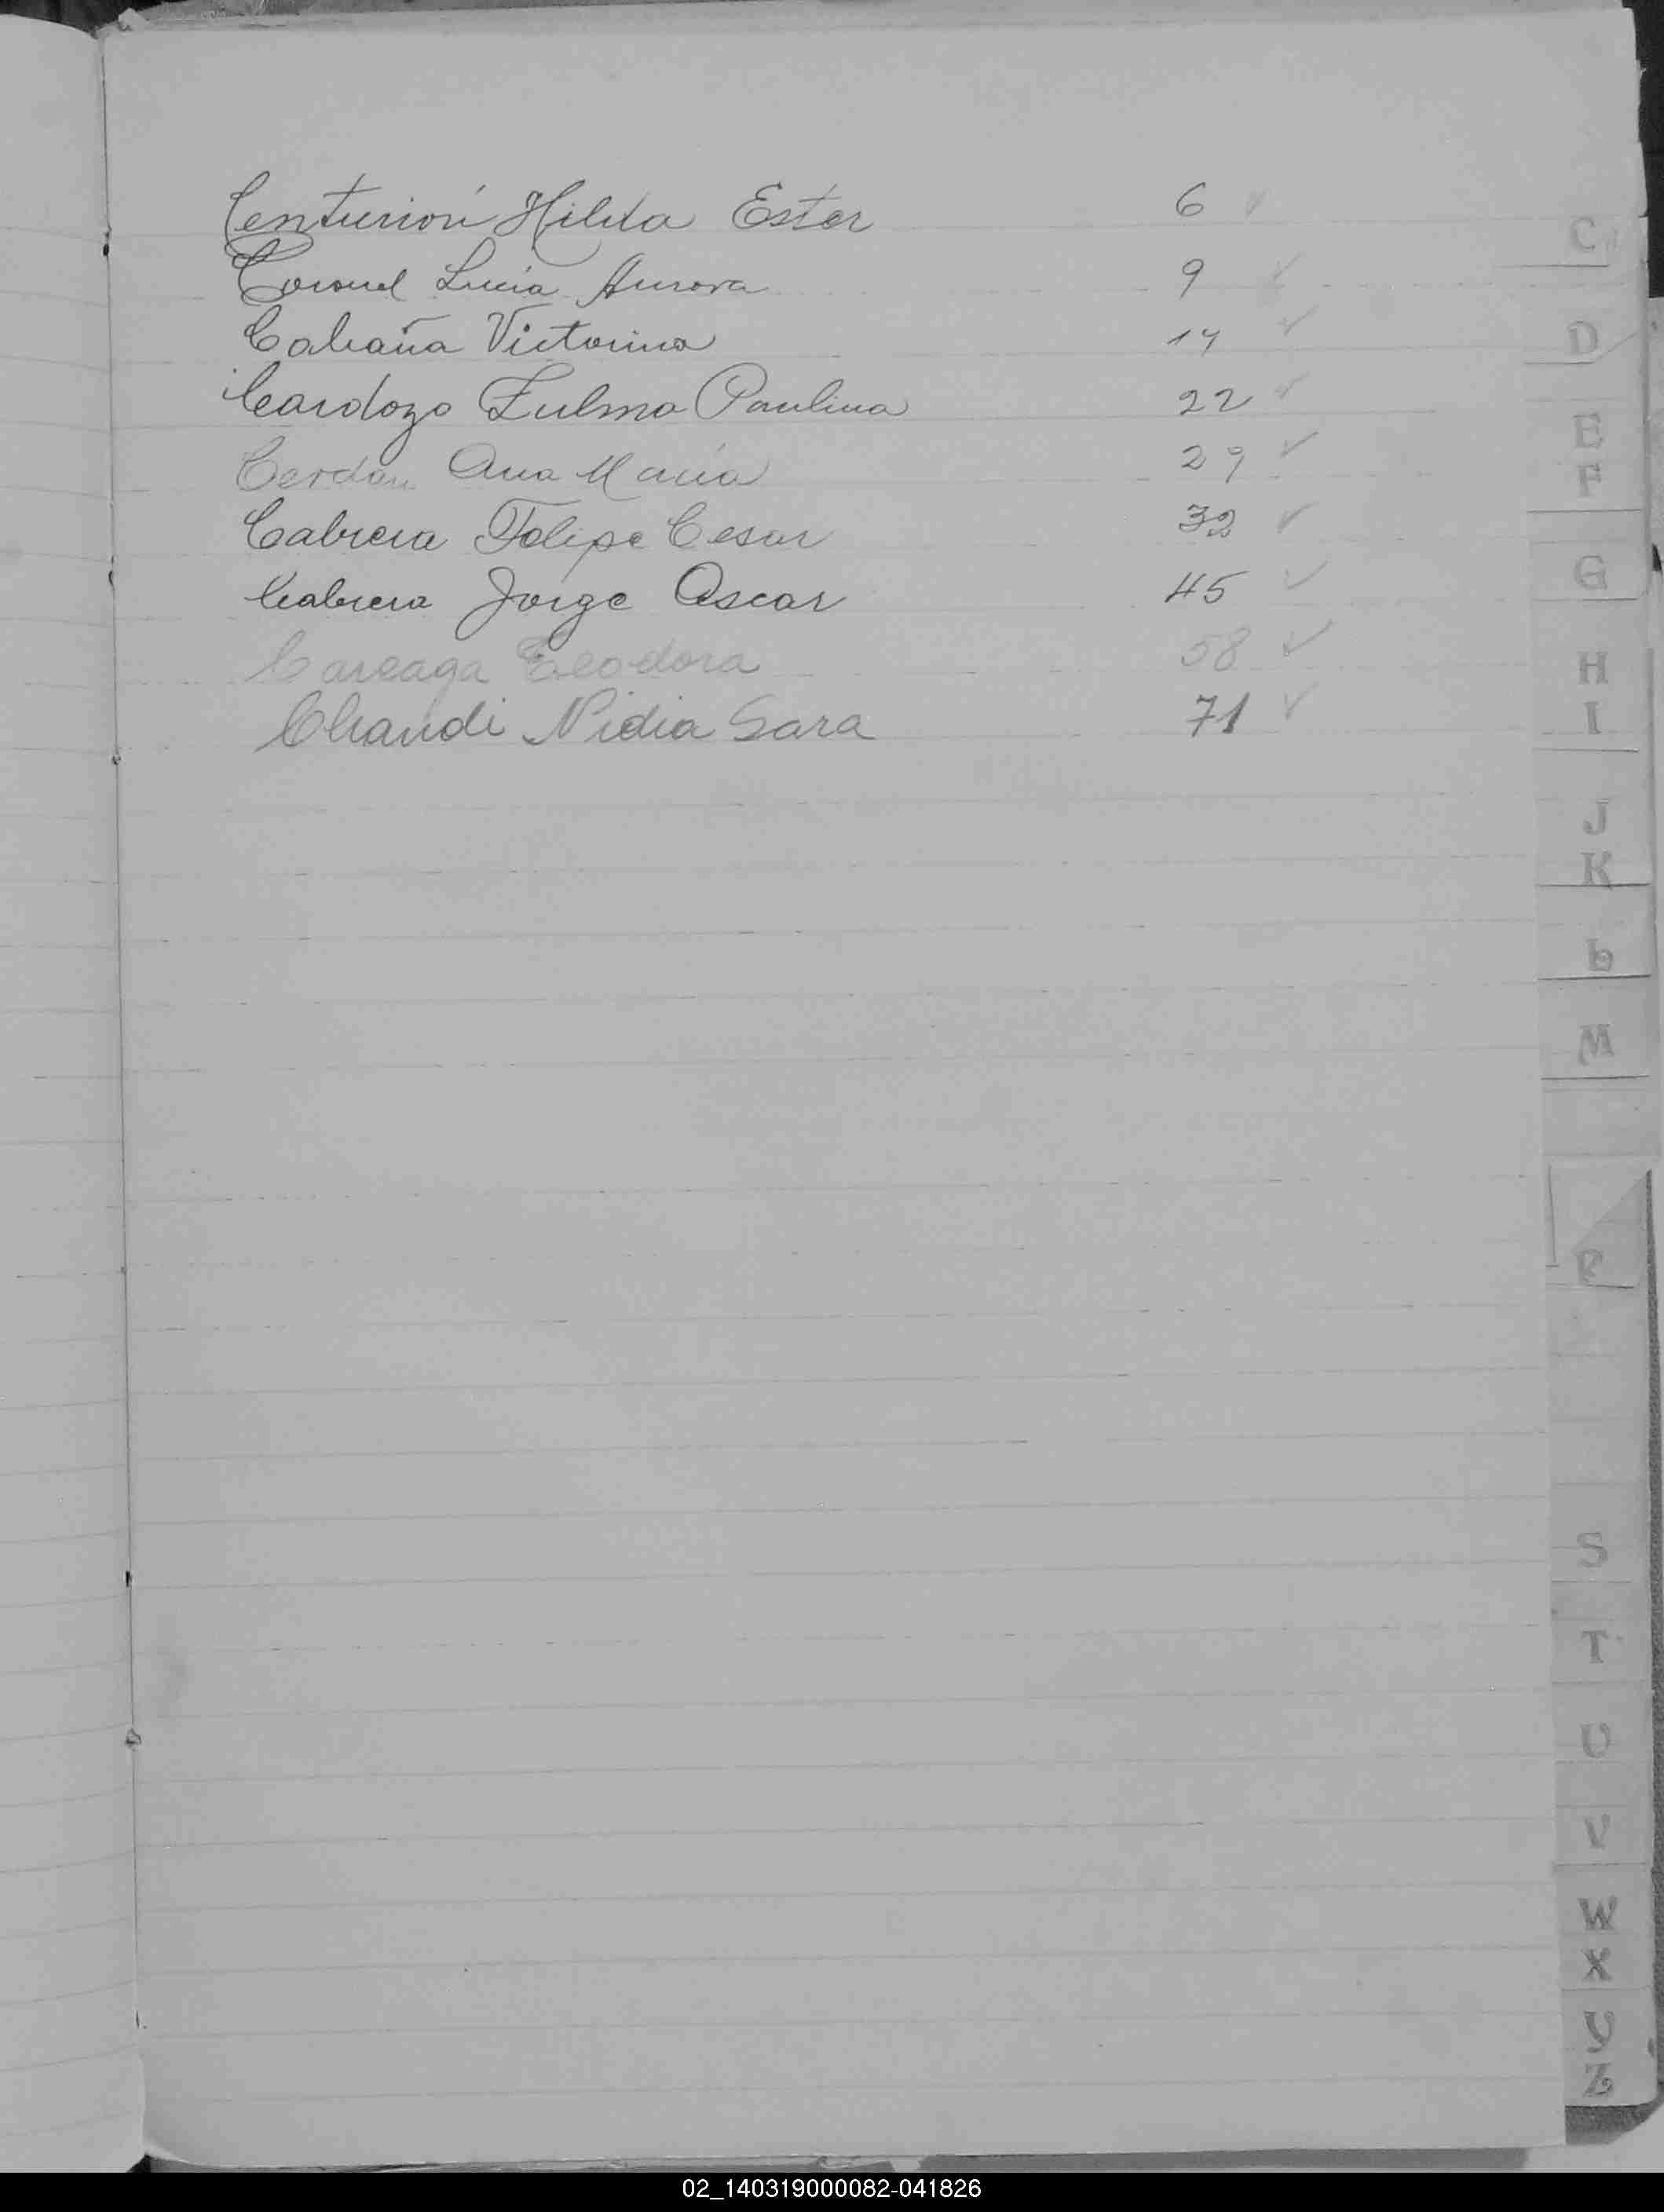 Centurión Hilda Ester 6 ✓
Coronel Lucía Aurora 9 ✓
Cabaña Victorina 14 ✓
Cardozo Zulma Paulina 22 ✓
Cerdan Ana María 29 ✓
Cabrera Felipe Cesar 32 ✓
Cabrera Jorge Oscar 45 ✓
Careaga Eleodora 58 ✓
Chandi Nidia Sara 71 ✓
C
D
E
F
G
H
I
J
K
L
M
R
S
T
U
V
W
X
Y
Z
02_140319000082-041826